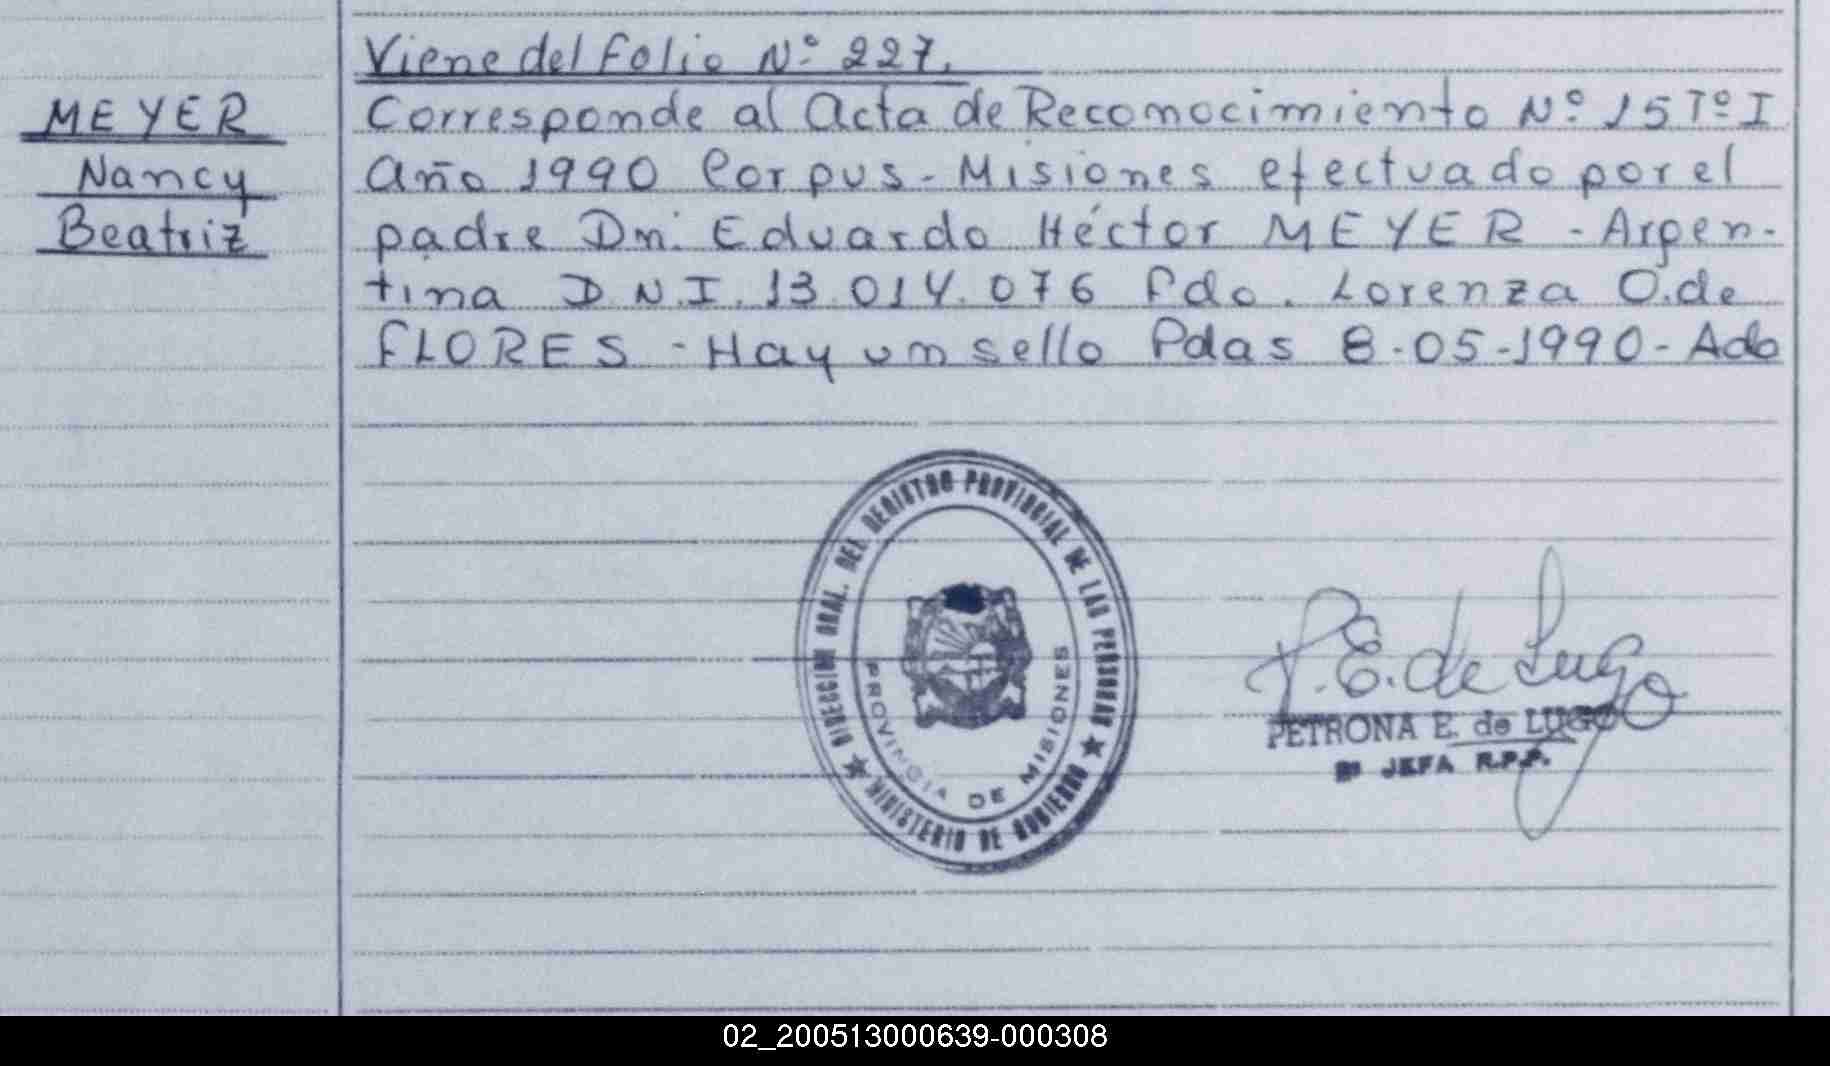 Viene del Folio Nº 227.
MEYER
Nancy
Beatriz
Corresponde al Acta de Reconocimiento Nº 15 Tº I
Año 1990 Corpus - Misiones efectuado por el
padre Dn. Eduardo Héctor MEYER - Argen-
tina D.N.I. 13.014.076 Fdo. Lorenza O. de
FLORES - Hay un sello Pdas 8-05-1990 - Ado
DIRECCION GRAL. DEL REGISTRO PROVINCIAL DE LAS PERSONAS
PROVINCIA DE MISIONES
MINISTERIO DE GOBIERNO
P. E. de Lugo
PETRONA E. de LUGO
JEFA R.P.P.
02_200513000639-000308